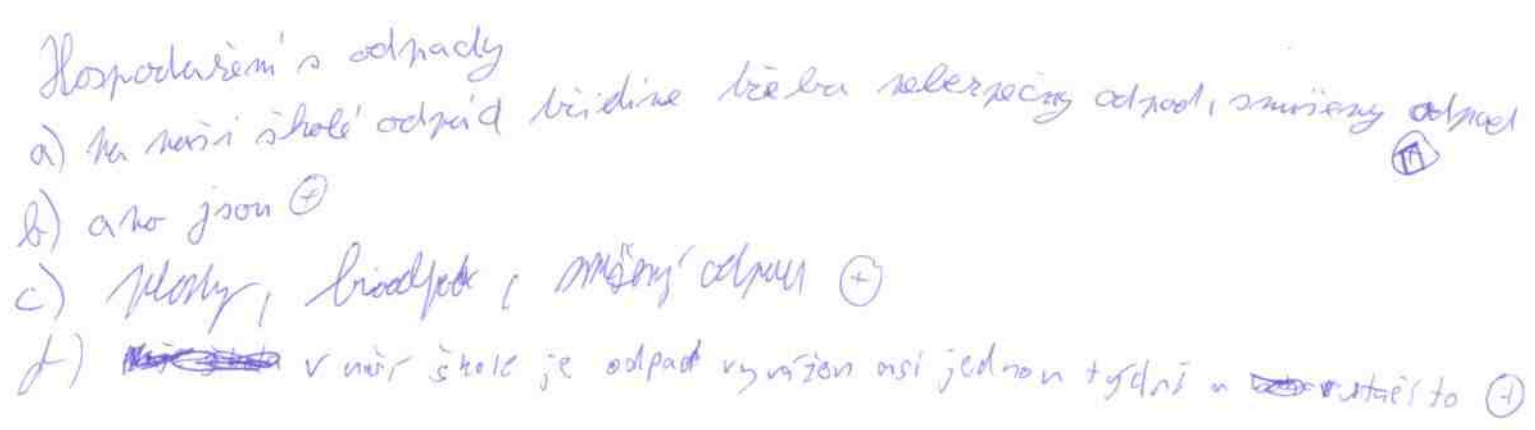 Hospodaření s odpady
a) na naší škole odpad třídíme třeba nebezpečný odpad, smíšený odpad
b) ano jsou +
c) plasty, bioodpad, smíšený odpad +
d) v naší škole je odpad vyvážen asi jednou týdně a stačí to +